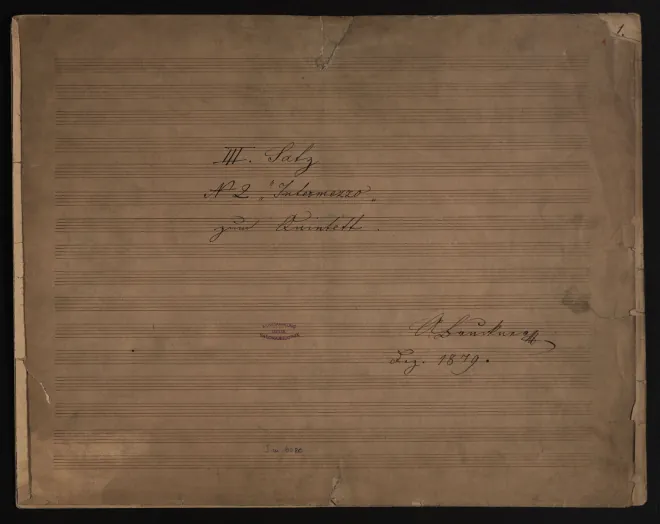 1.
III. Satz
No 2 „Intermezzo„
zum Quintett.
ABruckner
Dez. 1879.